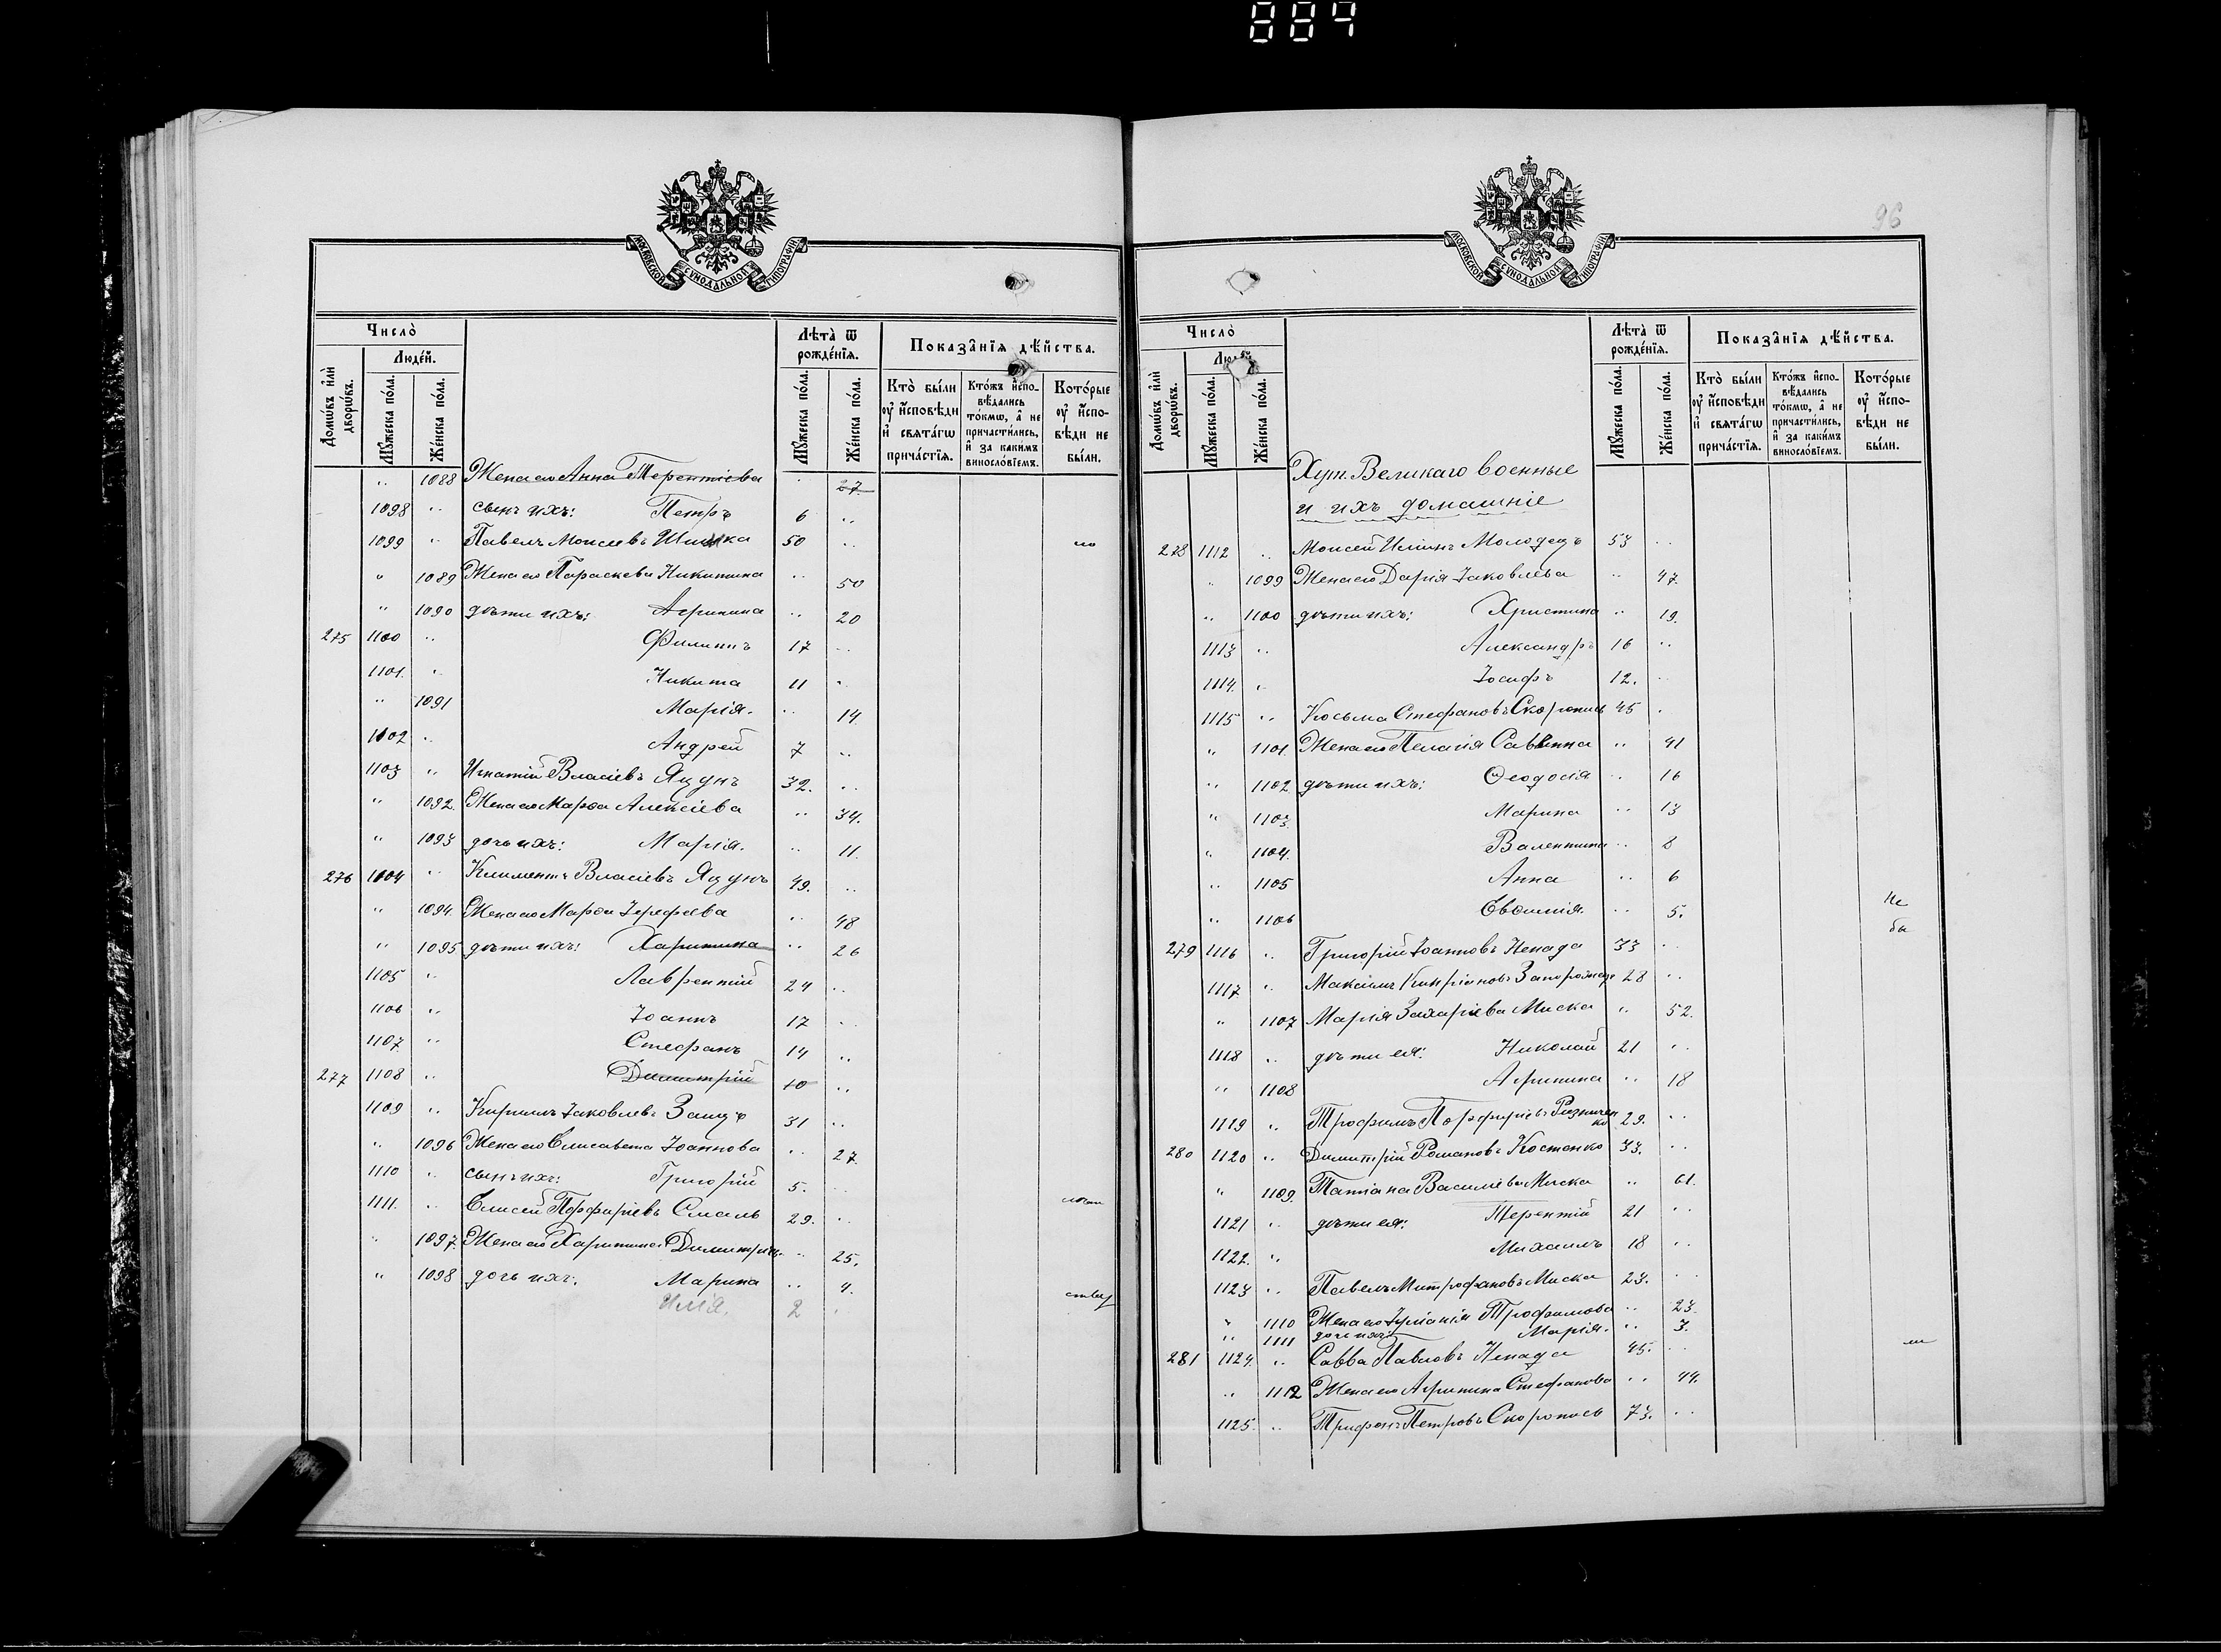 884
МОСКОВСКОЙ СѴНОДАЛЬНОЙ ТИПОГРАФІИ
Число̀
Люде́й.
Домѡ́въ и҆лѝ дворѡ́въ.
Мꙋ́жеска по́ла.
Же́нска по́ла.
Лѣта̀ ѿ рожде́нїѧ.
Мꙋ́жеска по́ла.
Же́нска по́ла.
Показа̑нїѧ дѣ́йства.
Кто̀ бы́ли ᲂу҆ и҆́сповѣди и҆ свѧта́гѡ прича́стїѧ.
Кто́жъ и҆спо-вѣ́дались то́кмѡ, а҆ не причасти́лись, и҆ за каки́мъ виносло́вїемъ.
Кото́рые ᲂу҆ и҆́спо-вѣди не бы́ли.
" 1088 Жена его Анна Терентіева " 27
1098 " сынъ ихъ: Петръ 6 "
1099 " Павелъ Моисеевъ 50 " ло
" 1089 Жена его Параскева Никитина " 50
" 1090 дѣти ихъ: Агрипина " 20
275 1100 " Филиппъ 17 "
1101. " Никита 11 "
" 1091 Марія. " 14
1102 " Андрей 7 "
1103 " Игнатій Власіевъ Яцунъ 32. "
" 1092. Жена его Марѳа Алексіева " 34.
" 1093 дочь ихъ: Марія. " 11.
276 1104 " Климентъ Власіевъ Яцунъ 49. "
" 1094. Жена его Марѳа Іерофеева " 48
" 1095 дѣти ихъ: Харитина " 26
1105 " Лаврентій 24 "
1106 " Іоаннъ 17 "
1107. " Стефанъ 14 "
277 1108 " Димитрій 10 "
1109 " Кириллъ Іаковлевъ Заяцъ 31 "
" 1096 Жена его Елисавета Іоаннова " 27.
1110 " сынъ ихъ: Григорій 5. "
1111. " Елисей Порфиріевъ Смаль 29. "
" 1097. Жена его Харитина Димитріев. " 25.
" 1098 дочь ихъ: Марина " 4. ству
Илія. 2 "
96
МОСКОВСКОЙ СѴНОДАЛЬНОЙ ТИПОГРАФІИ
Число̀
Люде́й.
Домѡ́въ и҆лѝ дворѡ́въ.
Мꙋ́жеска по́ла.
Же́нска по́ла.
Лѣта̀ ѿ рожде́нїѧ.
Мꙋ́жеска по́ла.
Же́нска по́ла.
Показа̑нїѧ дѣ́йства.
Кто̀ бы́ли ᲂу҆ и҆́сповѣди и҆ свѧта́гѡ прича́стїѧ.
Кто́жъ и҆спо-вѣ́дались то́кмѡ, а҆ не причасти́лись, и҆ за каки́мъ виносло́вїемъ.
Кото́рые ᲂу҆ и҆́спо-вѣди не бы́ли.
Хут. Великаго военные
и ихъ домашніе
278 1112 " Моисей Иліинъ Молодецъ 53 "
" 1099 Жена его Дарія Іаковлева " 47.
" 1100 дѣти ихъ: Христина " 19.
1113 " Александръ 16 "
1114. " Іосифъ 12. "
1115 " Косьма Стефановъ Скоропись 45 "
" 1101. Жена его Пелагія Саввина " 41
" 1102 дѣти ихъ: Ѳеодосія " 16
" 1103. Марина " 13
" 1104. Валентина " 8
" 1105 Анна " 6
" 1106 Евѳимія. " 5. Не
бы
279 1116 " Григорій Іоанновъ Ненада 33 "
1117. " Максимъ Кипріановъ Запорожец 28 "
" 1107 Марія Захаріева Миска " 52.
1118 " дѣти ея: Николай 21 "
" 1108 Агрипина " 18
1119 " Трофимъ Порфиріевъ Резничен
ко 29. "
280 1120 " Димитрій Романовъ Костенко 33. "
" 1109. Татіана Василіева Миска " 61.
1121 " дѣти ея: Терентій 21 "
1122. " Михаилъ 18 "
1123 " Павелъ Митрофановъ Миска 23. "
" 1110 Жена его Іуліанія Трофимова " 23.
" 1111 дочь ихъ: Марія. " 3.
281 1124. " Савва Павловъ Ненада 45. " ли
" 1112 Жена его Агрипина Стефанова " 44.
1125. " Трифонъ Петровъ Скоропись 73. "